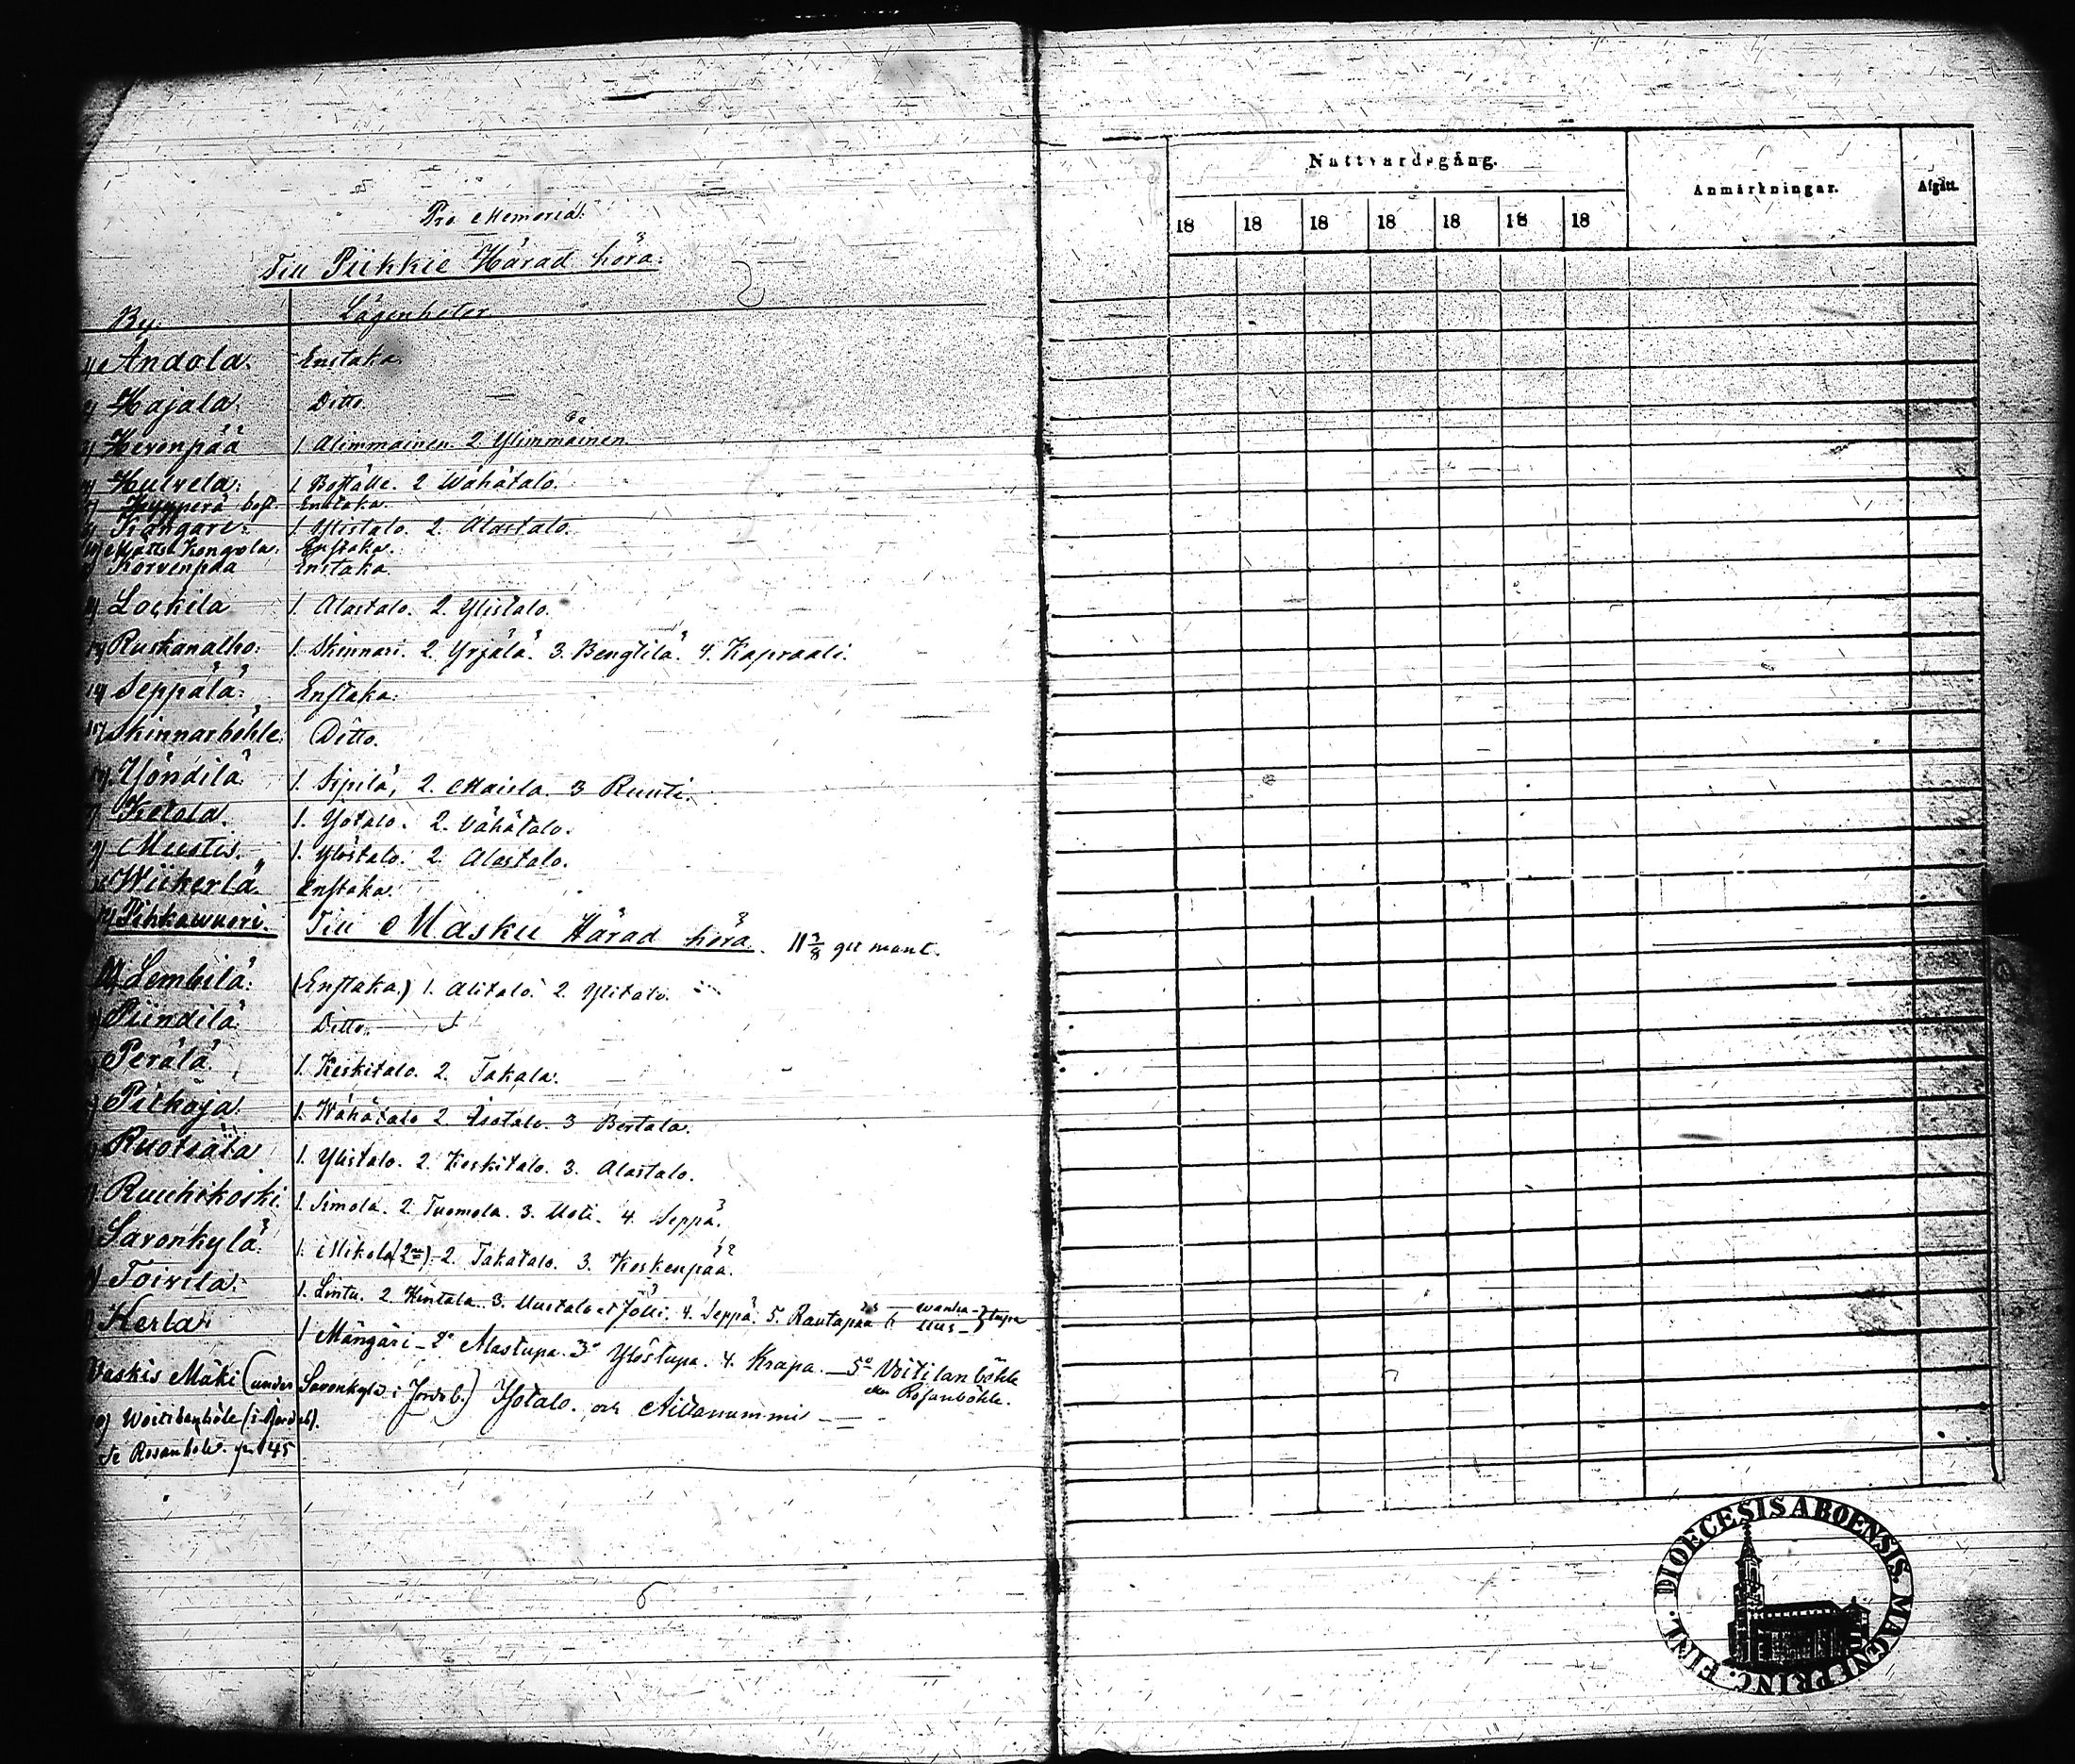 Pro Memoria:
Till Piikkie Härad höra:
By. Lägenheter.
Andola. Enstaka
Hajala. Ditto.
Hevonpää 1. Alimmainen. 2. Ylimmäinen.
Hulvela. 1. Bossälle. 2 Wähätalo.
Hypperä bost. Enstaka.
Kangare. 1. Ylistalo. 2. Alastalo.
Matts Kongola. Enstaka.
Korvenpää Enstaka.
Lockila 1. Alastalo. 2. Ylistalo.
Ruskanalho. 1. Skinnari. 2. Yrjälä. 3. Bengtilä. 4. Kapraali.
Seppälä. Enstaka.
Skinnarböhle. Ditto.
Yöndilä 1. Sipilä, 2. Maisla. 3 Ruuti.
Ketola. 1. Yötalo. 2. Vähätalo.
Mustis. 1. Ylöstalo. 2. Alastalo.
Wickerlä. Enstaka.
Pihkawuori. Till Masku Härad höra. 11 3/8 gil mant.
Lembilä. (Enstaka.) 1. Alitalo. 2. Ylitalo.
Piindilä Ditto.
Perälä 1. Keskitalo. 2. Takala.
Pitkäja 1. Wähätalo 2. Isotalo. 3 Bertala.
Ruotsala 1. Ylistalo. 2. Keskitalo. 3. Alastalo.
Ruuhikoski. 1. Simola. 2. Tuomola. 3. Uoti. 4. Seppä.
Savonkylä. 1. Mikola (2ne) 2. Takatalo. 3. Koskenpää.
Toivila. 1. Lintu. 2. Hintala. 3. Uustalo et Jölli. 4. Seppä. 5. Rautapää 6 wanha- uus- } tupa
Kerla. 1 Mängäri - 2º Alastupa. 3º Ylöstupa. 4. Krapa. - 5º Voitilanböhle
eller Rosanböhle.
Vaskis Mäki (under Savonkylä i Jordeb.) Isotalo. och Aittanummi
Woitilanböle (i Jordeb).
Rosanböle. 145
6
Nattvardsgång. Anmärkningar. Afgått.
18 18 18 18 18 18 18
DIOECESIS ABOENSIS. MAGNI PRINC. FINL.